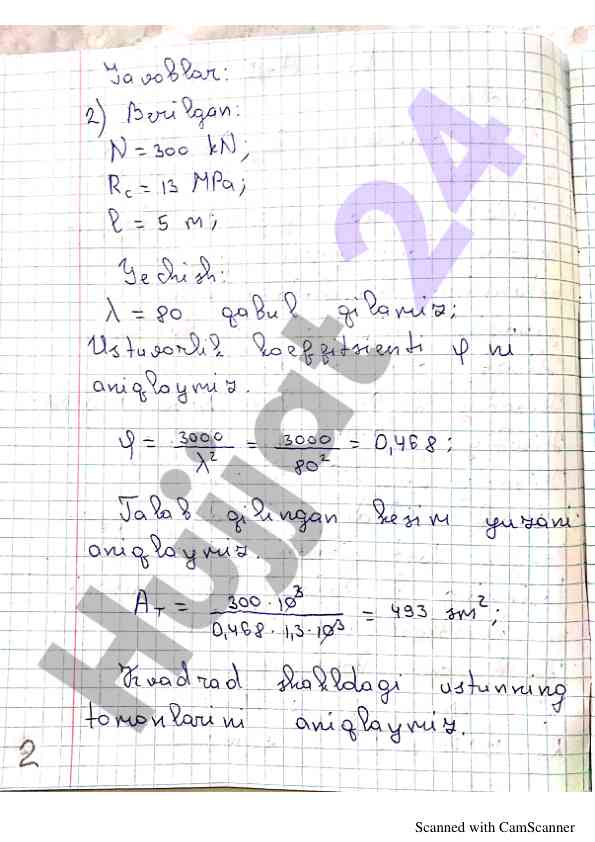 Javoblar:
2) Berilgan:
N = 300 kN;
Rc = 13 MPa;
l = 5 m;
Yechish:
λ = 80 qabul qilamiz;
Ustuvorlik koeffitsienti φ ni
aniqlaymiz.
φ = 3000/λ² = 3000/80² = 0,468;
Talab qilingan kesim yuzani
aniqlaymiz.
Aт = 300·10³/0,468·1,3·10³ = 493 sm²;
Kvadrad shakldagi ustunning
tomonlarini aniqlaymiz.
2
Hujjat 24
Scanned with CamScanner